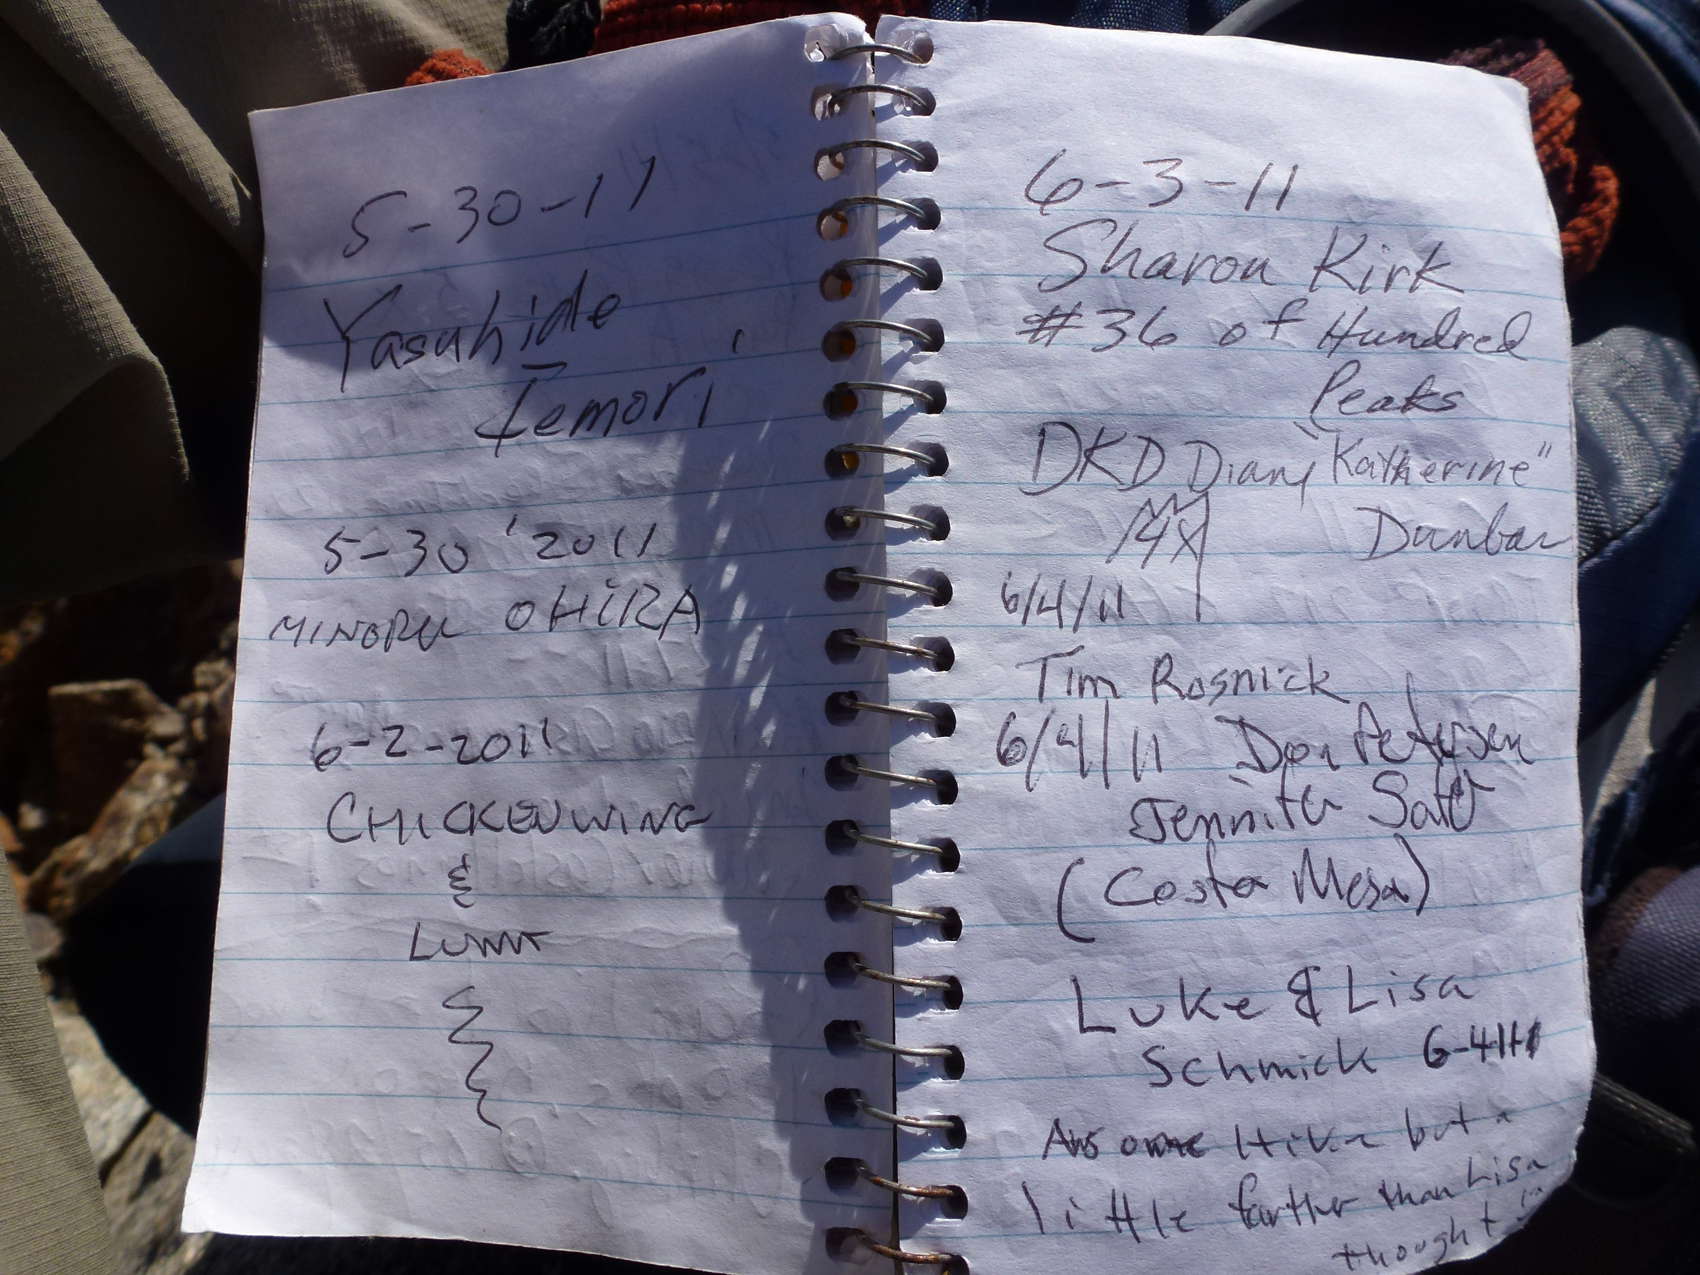 5-30-11
Yasuhide
Iemori
5-30 '2011
MINORU OHIRA
6-2-2011
CHICKENWING
&
6-3-11
Sharon Kirk
#36 of Hundred
Peaks
DKD Diana "Katherine"
14X Dunbar
6/4/11
Tim Rosnick
6/4/11 Don Petersen
Jennifer Sato
(Costa Mesa)
Luke & Lisa
Schmick 6-4-11
Awsome Hike but a
little farther than Lisa
thought!